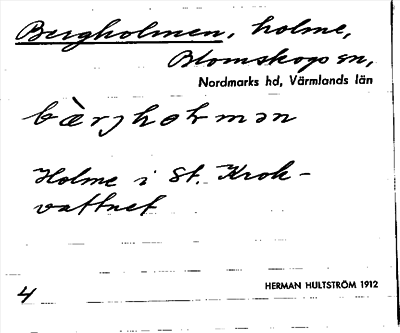 Bergholmen, holme,
Blomskogs sn,
Nordmarks hd, Värmlands län
bærjholmən
Holme i St. Krok-
vattnet
HERMAN HULTSTRÖM 1912
4